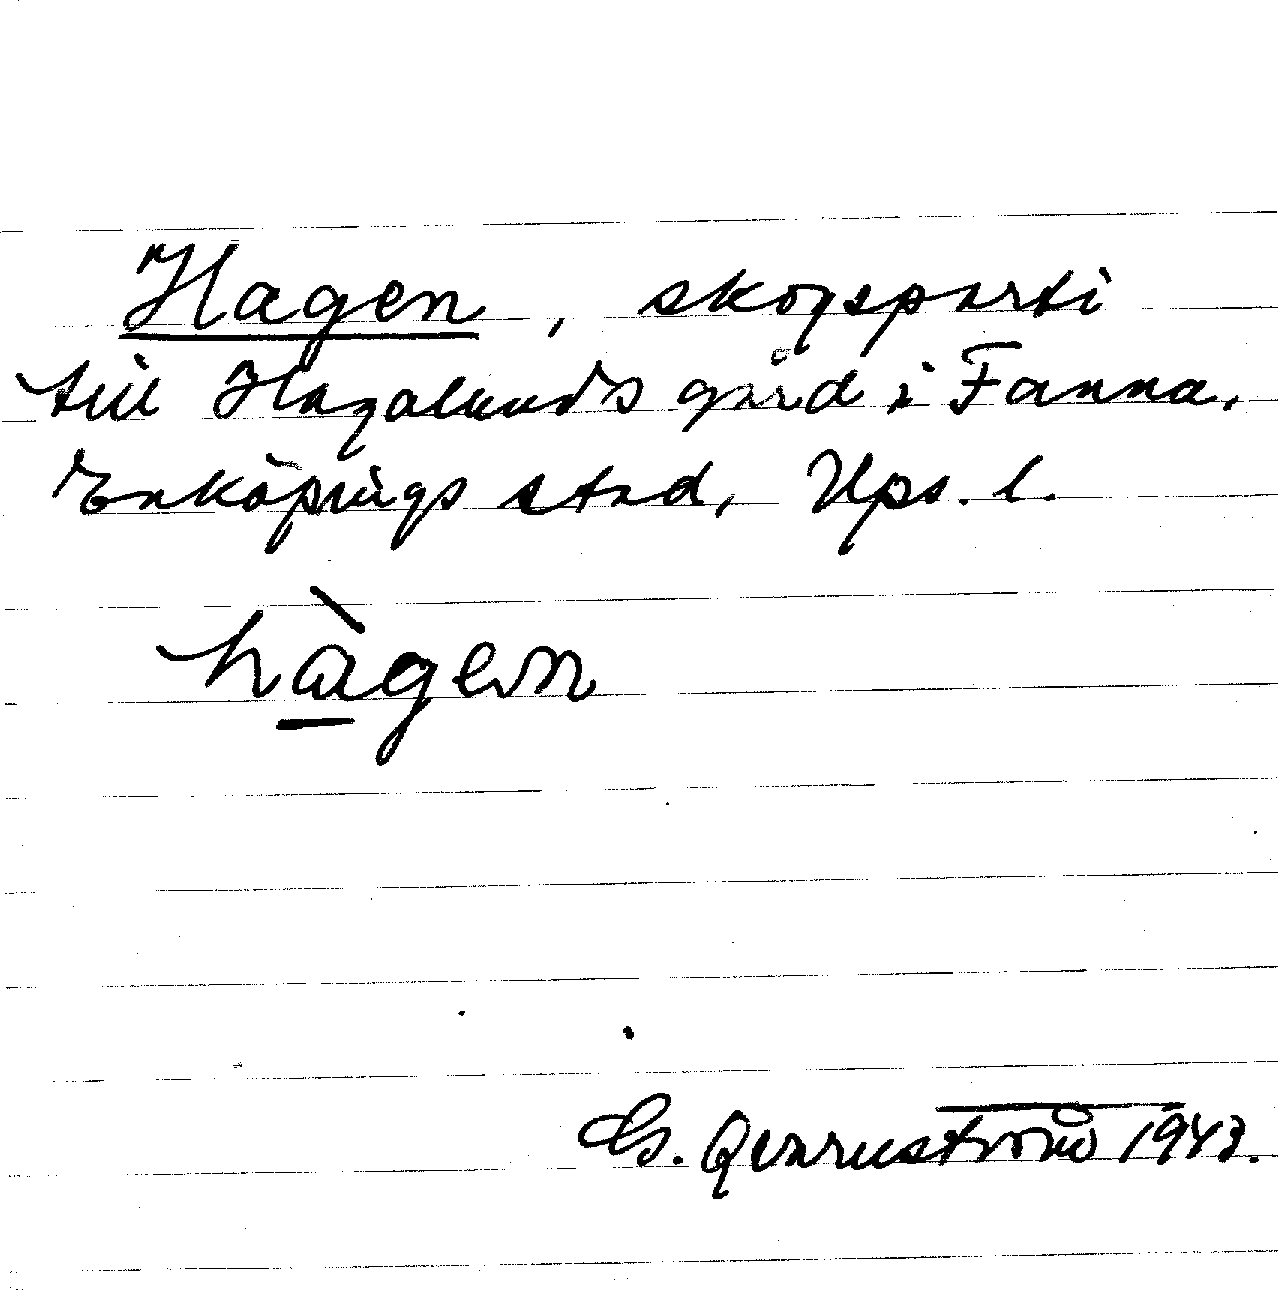 Hagen, skogsparti
till Hagalunds gård i Fanna,
Enköpings stad, Ups. l.
hàgen
G. Qvarnström 1943.